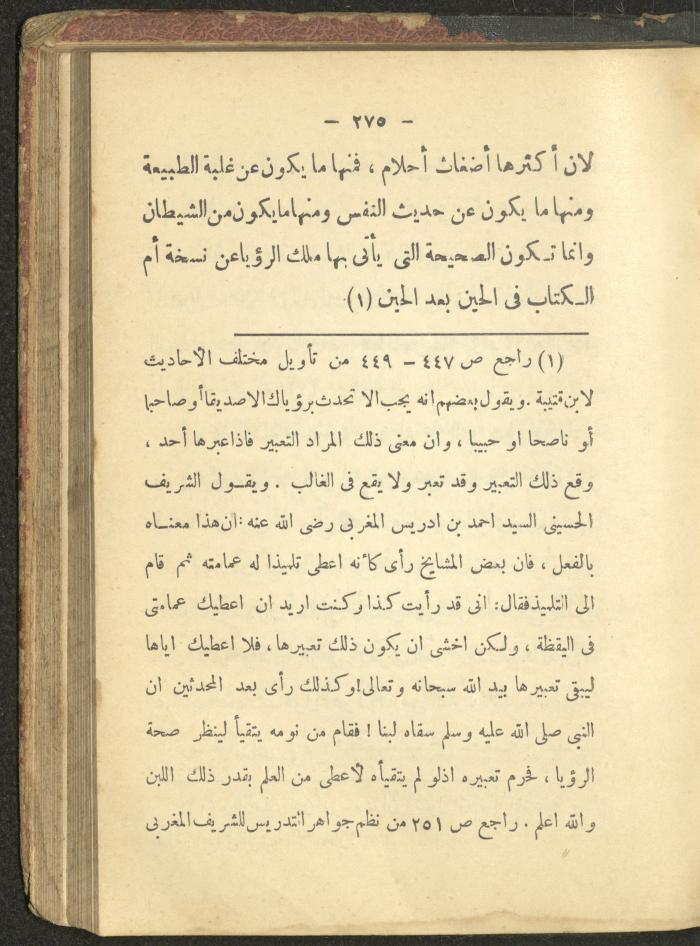 — ٢٧٥ —
لان أكثرها أضغاث أحلام ، فمنها ما يكون عن غلبة الطبيعة
ومنها ما يكون عن حديث النفس ومنها ما يكون من الشيطان
وانما تكون الصحيحة التى يأتى بها ملك الرؤيا عن نسخة أم
الكتاب فى الحين بعد الحين (١)
(١) راجع ص ٤٤٧ – ٤٤٩ من تأويل مختلف الاحاديث
لابن قتيبة . ويقول بعضهم انه يجب الا تحدث برؤياك الا صديقا أو صاحبا
أو ناصحا او حبيبا ، وان معنى ذلك المراد التعبير فاذا عبرها أحد ،
وقع ذلك التعبير وقد تعبر ولا يقع فى الغالب . ويقول الشريف
الحسينى السيد احمد بن ادريس المغربى رضى الله عنه : ان هذا معناه
بالفعل ، فان بعض المشايخ رأى كأنه اعطى تلميذا له عمامته ثم قام
الى التلميذ فقال: انى قد رأيت كذا وكنت اريد ان اعطيك عمامتى
فى اليقظة ، ولكن اخشى ان يكون ذلك تعبيرها ، فلا اعطيك اياها
ليبقى تعبيرها بيد الله سبحانه وتعالى! وكذلك رأى بعد المحدثين ان
النبى صلى الله عليه وسلم سقاه لبنا ! فقام من نومه يتقيأ لينظر صحة
الرؤيا ، فحرم تعبيره اذ لو لم يتقيأه لاعطى من العلم بقدر ذلك اللبن
والله اعلم . راجع ص ٢٥١ من نظم جواهر التدريس للشريف المغربى